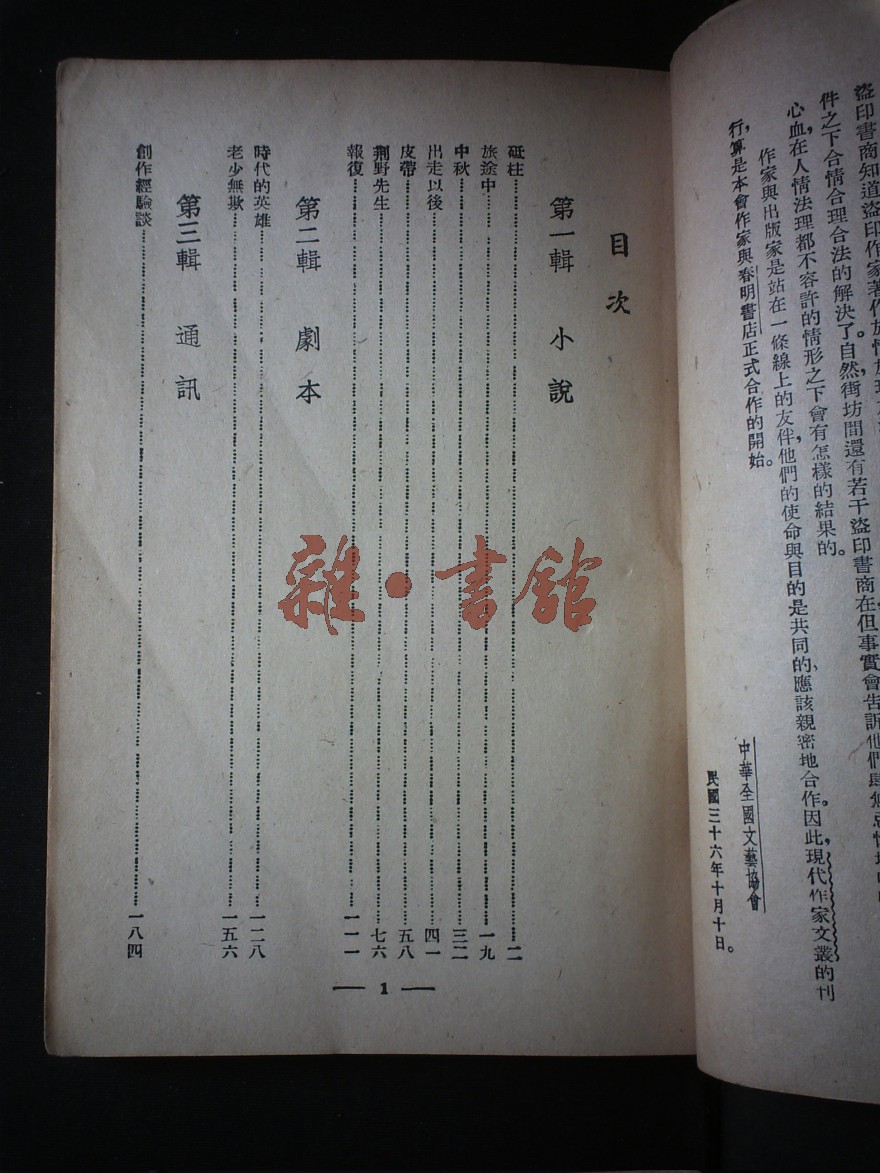 盜印書商知道盜印作家著作於情於理
件之下合情合理合法的解決了。自然，街坊間還有若干盜印書商在，但事實會告訴他們肆無忌憚地
心血，在人情法理都不容許的情形之下會有怎樣的結果的。
作家與出版家是站在一條線上的友伴，他們的使命與目的是共同的，應該親密地合作。因此，現代作家文叢的刊
行，算是本會作家與春明書店正式合作的開始。
中華全國文藝協會
民國三十六年十月十日。
目次
第一輯 小說
砥柱……二
旅途中……一九
中秋……三二
出走以後……四一
皮帶……五八
荆野先生……七六
報復……一一一
第二輯 劇本
時代的英雄……一二八
老少無欺……一五六
第三輯 通訊
創作經驗談……一八四
— 1 —
雜·書館